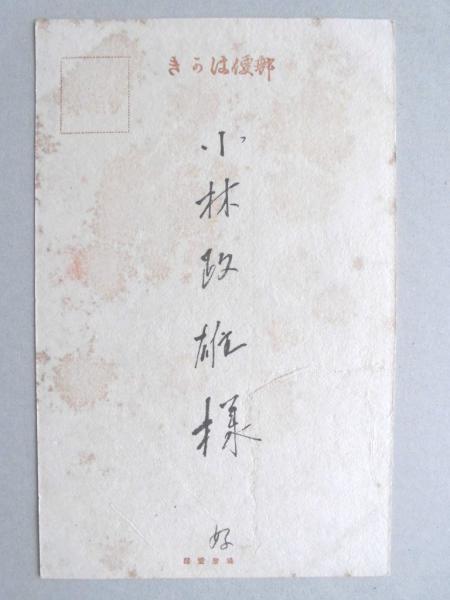 郵便はかき
小林政雄様
好